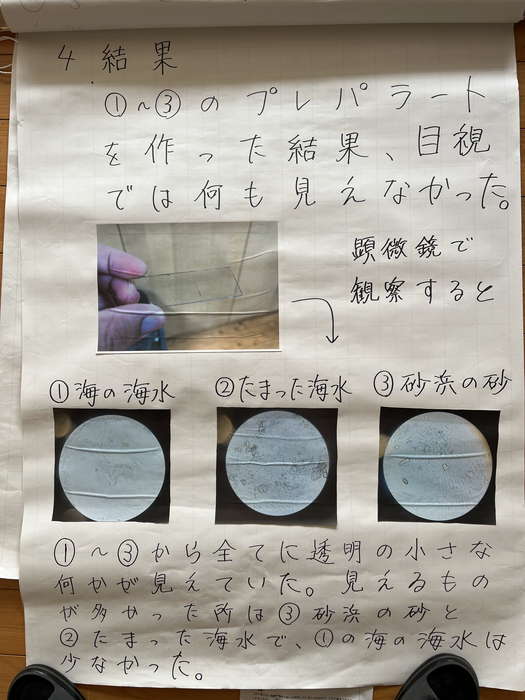 4 結果
①~③のプレパラート
を作った結果、目視
では何も見えなかった。
顕微鏡で
観察すると
①海の海水
②たまった海水
③砂浜の砂
①~③から全てに透明の小さな
何かが見えていた。見えるもの
が多かった所は③砂浜の砂と
②たまった海水で、①の海の海水は
少なかった。